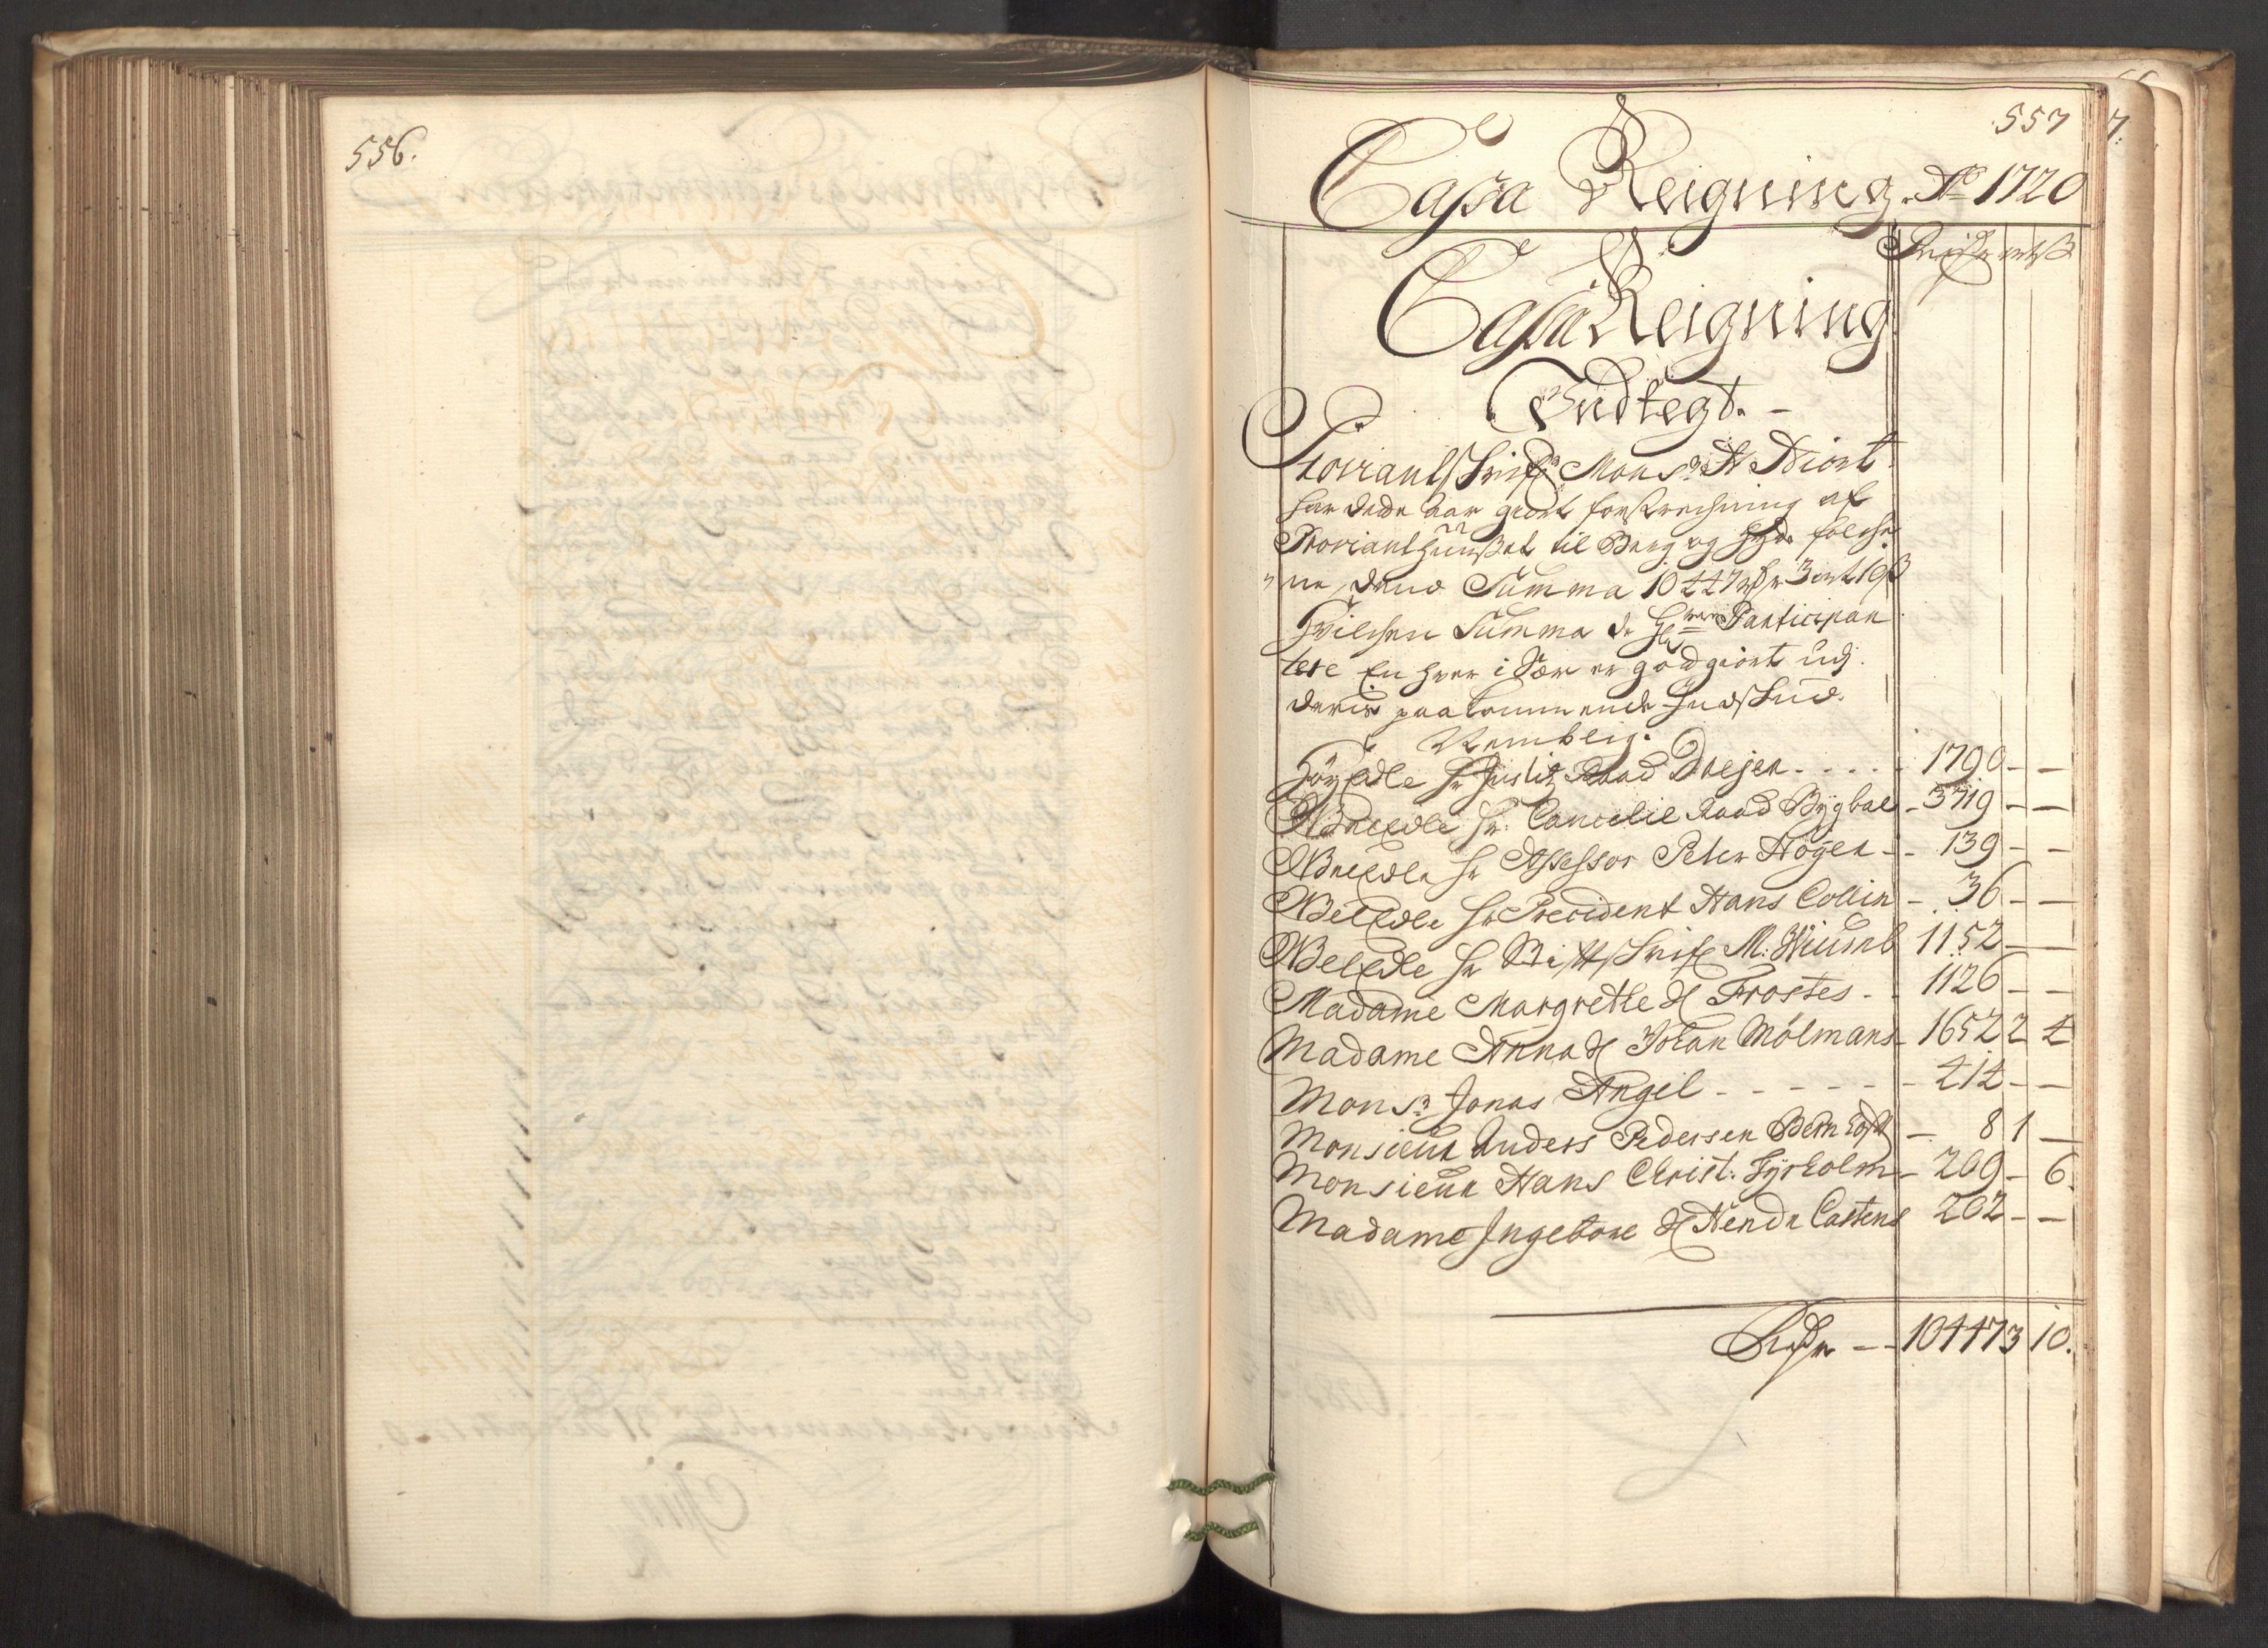 556.
557
Cassa Reigning. Ao 1720
Cassa Reigning
Indtegt.
Proviantskrifr Monsr A Hiort
har dede aar giort forstrechning af
Provianthuußet til Berg og Hÿtte folche
ne, dend Summa 10447 rdr 3 ort 10 ß
Hvilchen Summa de Hrer Participan
tere En hver i Sær er godgiort udj
deris paakommende Indskud.
Nemblig.
Høÿ Edle Hr Justitz Raad Drejer - - - - - 1790 - -
Wel Edle Hr. Cancelie Raad Bÿgbal - 3719 - -
Wel Edle Hr Assessor Peter Höÿer - - 139 - -
Wel Edle Hr President Hans Collin - 36 - -
Wel Edle Hr Skrifr M: Wiumb 1152 - -
Madame Margrethe Sl Frostes - - 1126 - -
Madame Anna Sl Johan Mölmans - 1652 2 4
Monsr Jonas Angel - - - - - - 414 - -
Monsieur Anders Pedersen Bernhoft - 8 1 -
Monsieur Hans Christ: Fÿrholm - 209 - 6.
Madame Ingebore Sl Hendr Castens 202 - -
Rdr - - 10447 3 10.